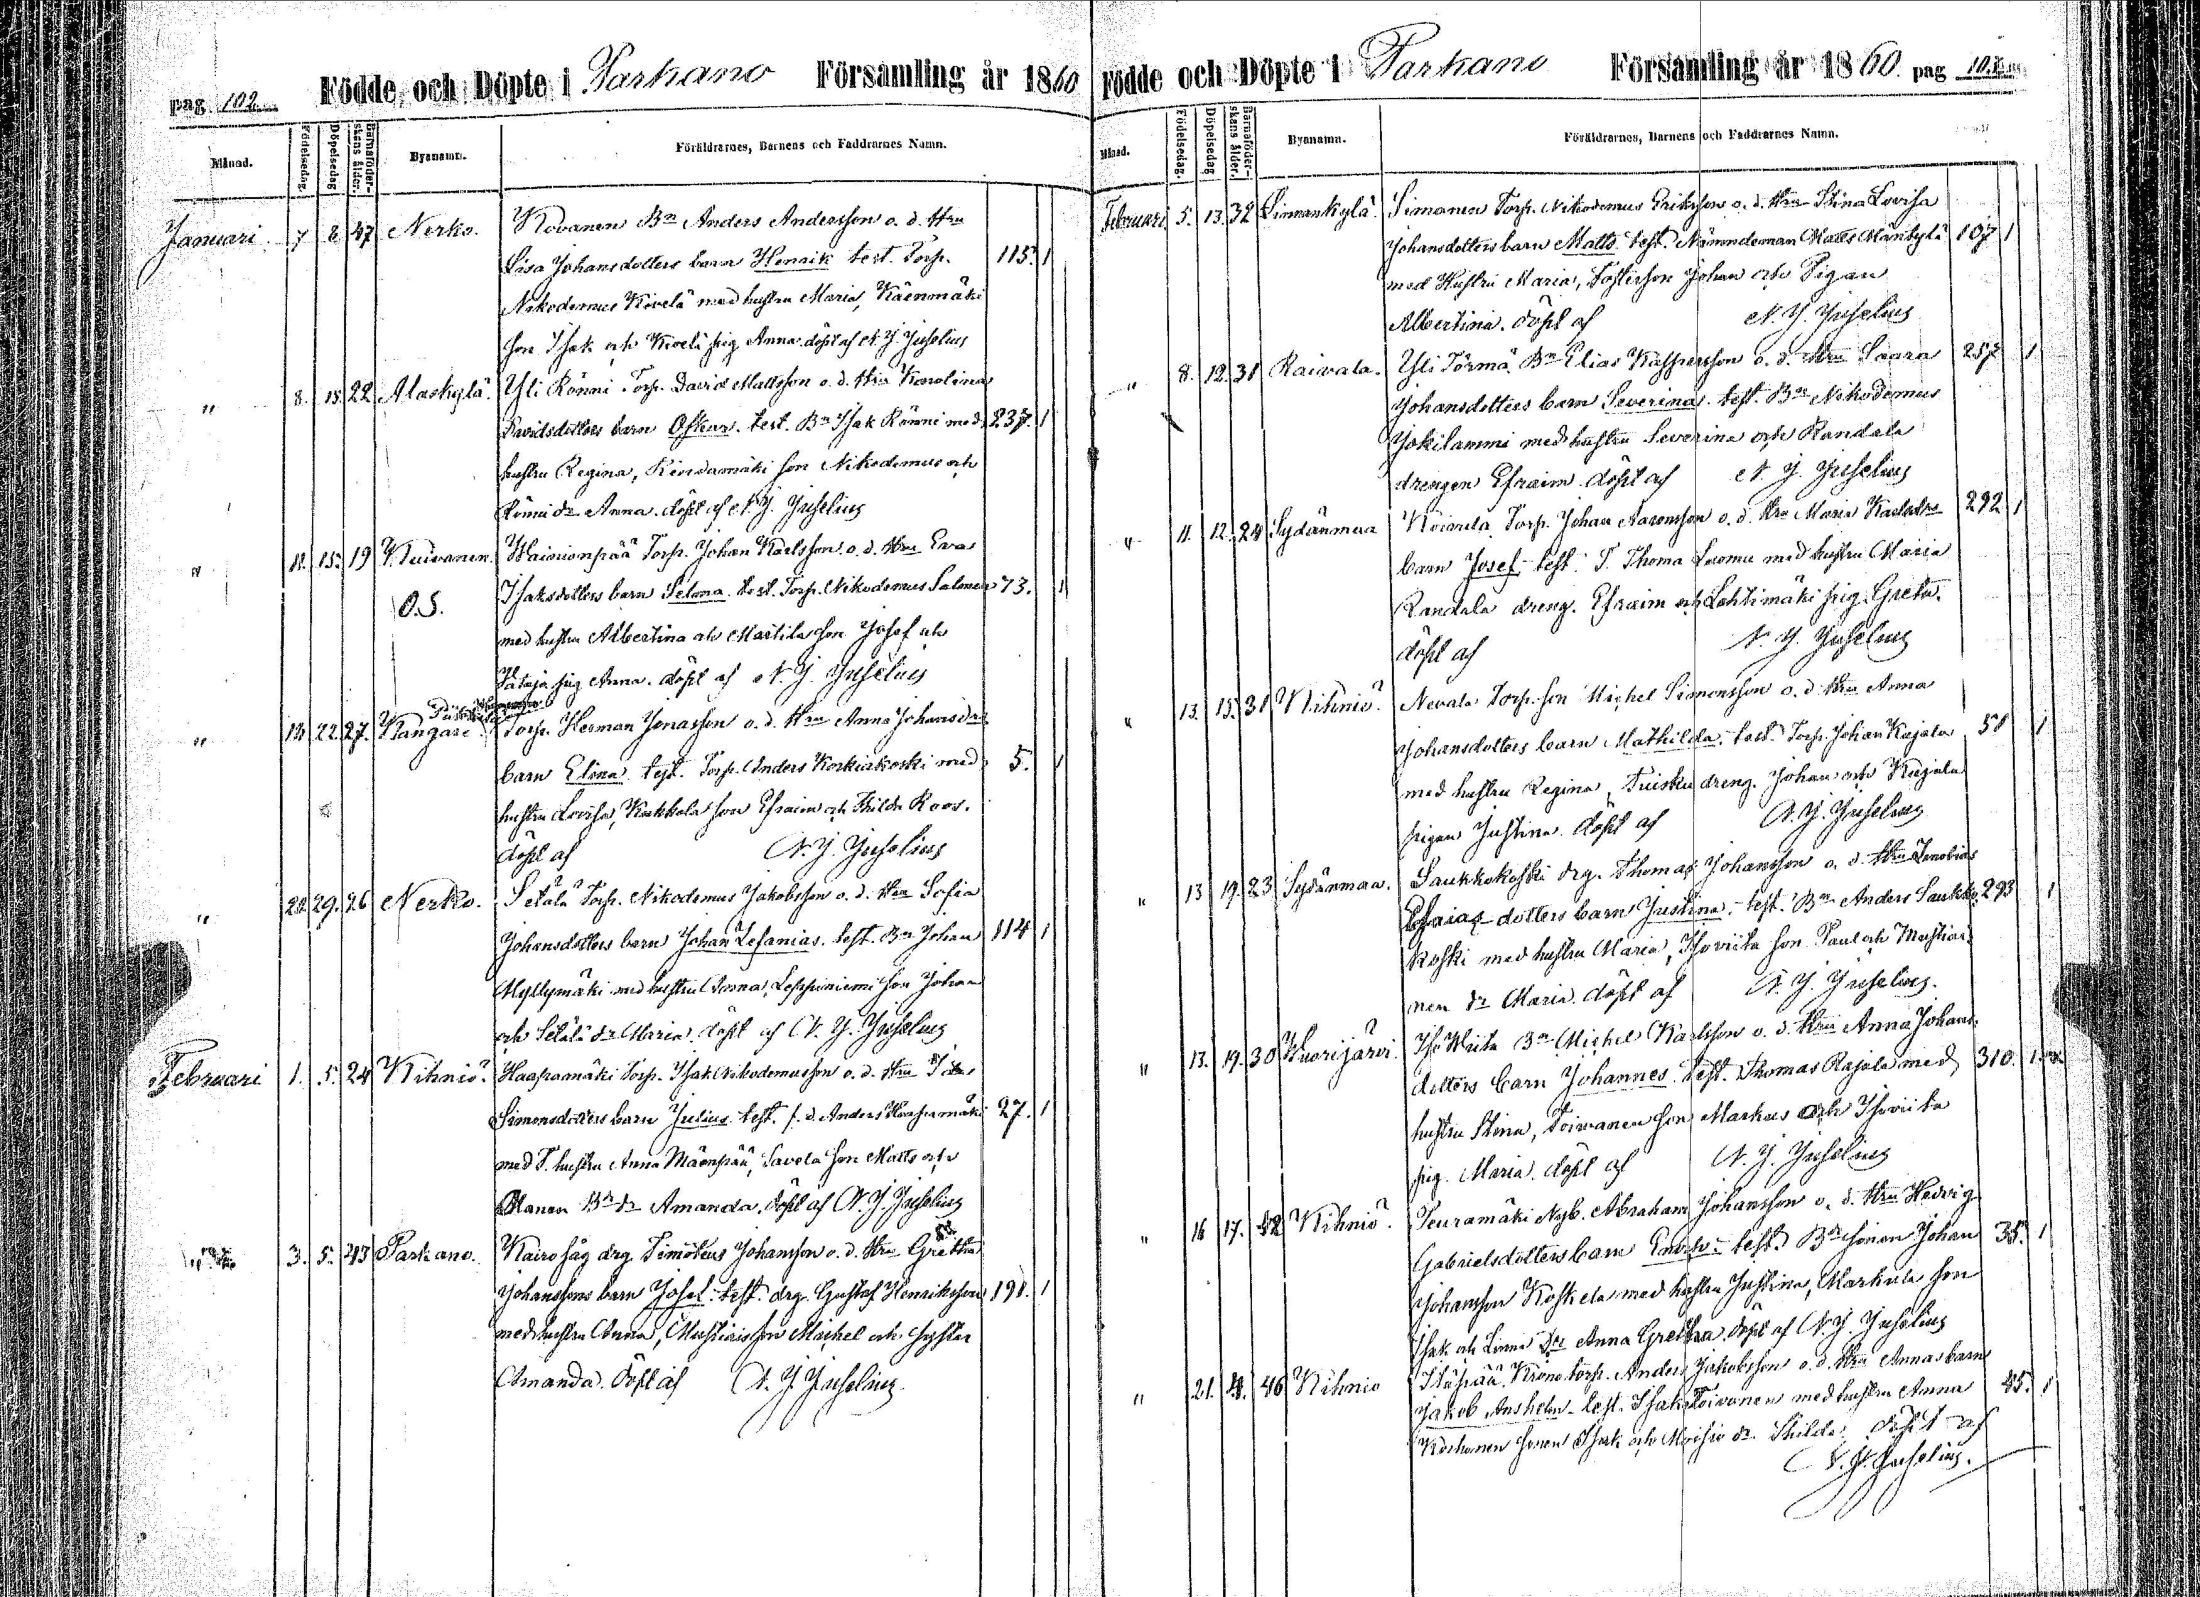 pag. 102 Födde och Döpte i Parkano Församling år 1860
Månad. Födelsedag. Döpelsedag Barnaföder-skans ålder. Byanamn. Föräldrarnes, Barnens och Faddrarnes Namn.
Januari. 7 8 47 Nerko. Kovanen Bn Anders Andersson o. d. Hru
Lisa Johansdotters barn Henrik test. Torp. 115. 1
Nikodemus Kivelä med hustru Maria, Käenmäki
son Isak och Kivelä pig. Anna. döpt af N. J. Juselius
" 8. 15. 22 Alaskylä. Yli Rönni Torp. David Mattsson o. d. Hru Karolina
Davidsdotters barn Oskar. test. Bn Isak Rönni med 237. 1
hustru Regina, son Nikodemus och
Rönni dr Anna. döpt af N. J. Juselius
" 11. 15. 19 Kuivanen. Torp. Johan Karlsson o. d. Hru Eva
O.S. Isaksdotters barn Selma. test. Torp. Nikodemus Salonen 73. 1
med hustru Albertina och Mattila son Josef och
Pataja pig Anna. döpt af N. J. Juselius
" 13 22 27. Kangari. Torp. Herman Jonasson o. d. Hru Anna Johansdrs
barn Elina. test. Torp. Anders Korkiakoski med 5. 1
hustru Lovisa, Kukkola son Efraim och Thilda Roos.
döpt af N. J. Juselius
" 22 29. 26 Nerko. Setälä Torp. Nikodemus Jakobsson o. d. Hru Sofia
Johansdotters barn Johan Zefanias. test. Bn Johan 114 1
Myllymäki med hustru Anna, Leppiniemi son Johan
och Setälä dr Maria. döpt af N. J. Juselius
Februari 1. 5. 24 Kihniö. Haapamäki Torp. Isak Nikodemusson o. d. Hru
Simonsdotters barn Julius. test. f. d. Anders Haapamäki 27. 1
med T. hustru Anna Mäenpää, Savela son Matts och
Bn dr Amanda. döpt af N. J. Juselius
" 3. 5. 43 Parkano. Kairo såg drg Timoteus Johansson o. d. Hru Gretha
Johanssons barn Josef. test. drg. Gustaf Henriksson 191. 1
med hustru Anna, son Michel och syster
Amanda. döpt af N. J. Juselius.
Födde och Döpte i Parkano Församling år 1860. pag 102
Månad. Födelsedag. Döpelsedag Barnaföder-skans ålder. Byanamn. Föräldrarnes, Barnens och Faddrarnes Namn.
Februari 5. 13. 32 Linnankylä. Simonen Torp. Nikodemus Eriksson o. d. Hru Stina Lovisa
Johansdotters barn Matts. test. Nämndeman Matts Mänkylä 107 1
med Hustru Maria, Fosterson Johan och Pigan
Albertina. döpt af N. J. Juselius
" 8. 12. 31 Raivala. Yli Törmä Bn Elias Kaspersson o. d. Hru Saara 257 1
Johansdotters barn Severina. test. Bn Nikodemus
Jokilammi med hustru Severina och Randala
drengen Efraim. döpt af N. J. Juselius
" 11. 12. 24 Sydänmaa Koivula Torp. Johan Aaronsson o. d. Hru Maria Karlsdrs 292 1
barn Josef. test. T. Thoma Luoma med hustru Maria
Randala dreng. Efraim och Lahtimäki pig. Greta.
döpt af N. J. Juselius
" 13. 15. 31 Kihniö. Nevala Torp. son Michel Simonsson o. d. Hru Anna
Johansdotters barn Mathilda. test. Torp. Johan Kujala 51 1
med hustru Regina, Tuisku dreng. Johan och Kujala
pigan Justina. döpt af N. J. Juselius
" 13 19. 23 Sydänmaa. Saukkokoski drg. Thomas Johansson o. d. Hru Zenobia
Esaias dotters barn Justina. test. Bn Anders Saukko 293 1
koski med hustru Maria, Isoviita son Paul och Mustiai
nen dr Maria. döpt af N. J. Juselius.
" 13. 19. 30 Kuorijärvi. Iso Wiita Bn Michel Karlsson o. d. Hru Anna Johans
dotters barn Johannes. test. Thomas Rajala med 310. 1
hustru Stina, Toivanen son Markus och Isoviita
pig. Maria. döpt af N. J. Juselius
" 16 17. 42 Kihniö. Peuramäki Nyb. Abraham Johansson o. d. Hru Hedvig
Gabrielsdotters barn Enok. test. Bn sonen Johan 35. 1
Johansson Koskela med hustru Justina, Markula son
Isak och Linna Dr Anna Gretha. döpt af N. J. Juselius
" 21. 4. 46 Kihniö Itäpää Krono torp. Anders Jakobsson o. d. Hru Annas barn
Jakob Anshelm. test. Isak Toivonen med hustru Anna 45. 1
Korhonen sonen Isak och Moisio dr. Thilda. döpt af
N. J. Juselius.